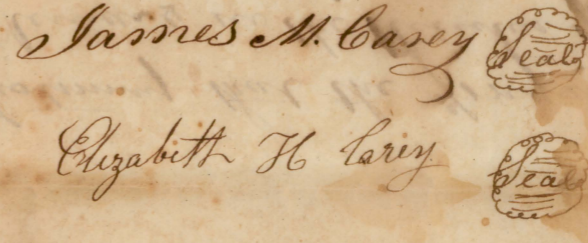 James M. Carey Seal
Elizabeth H Carey Seal